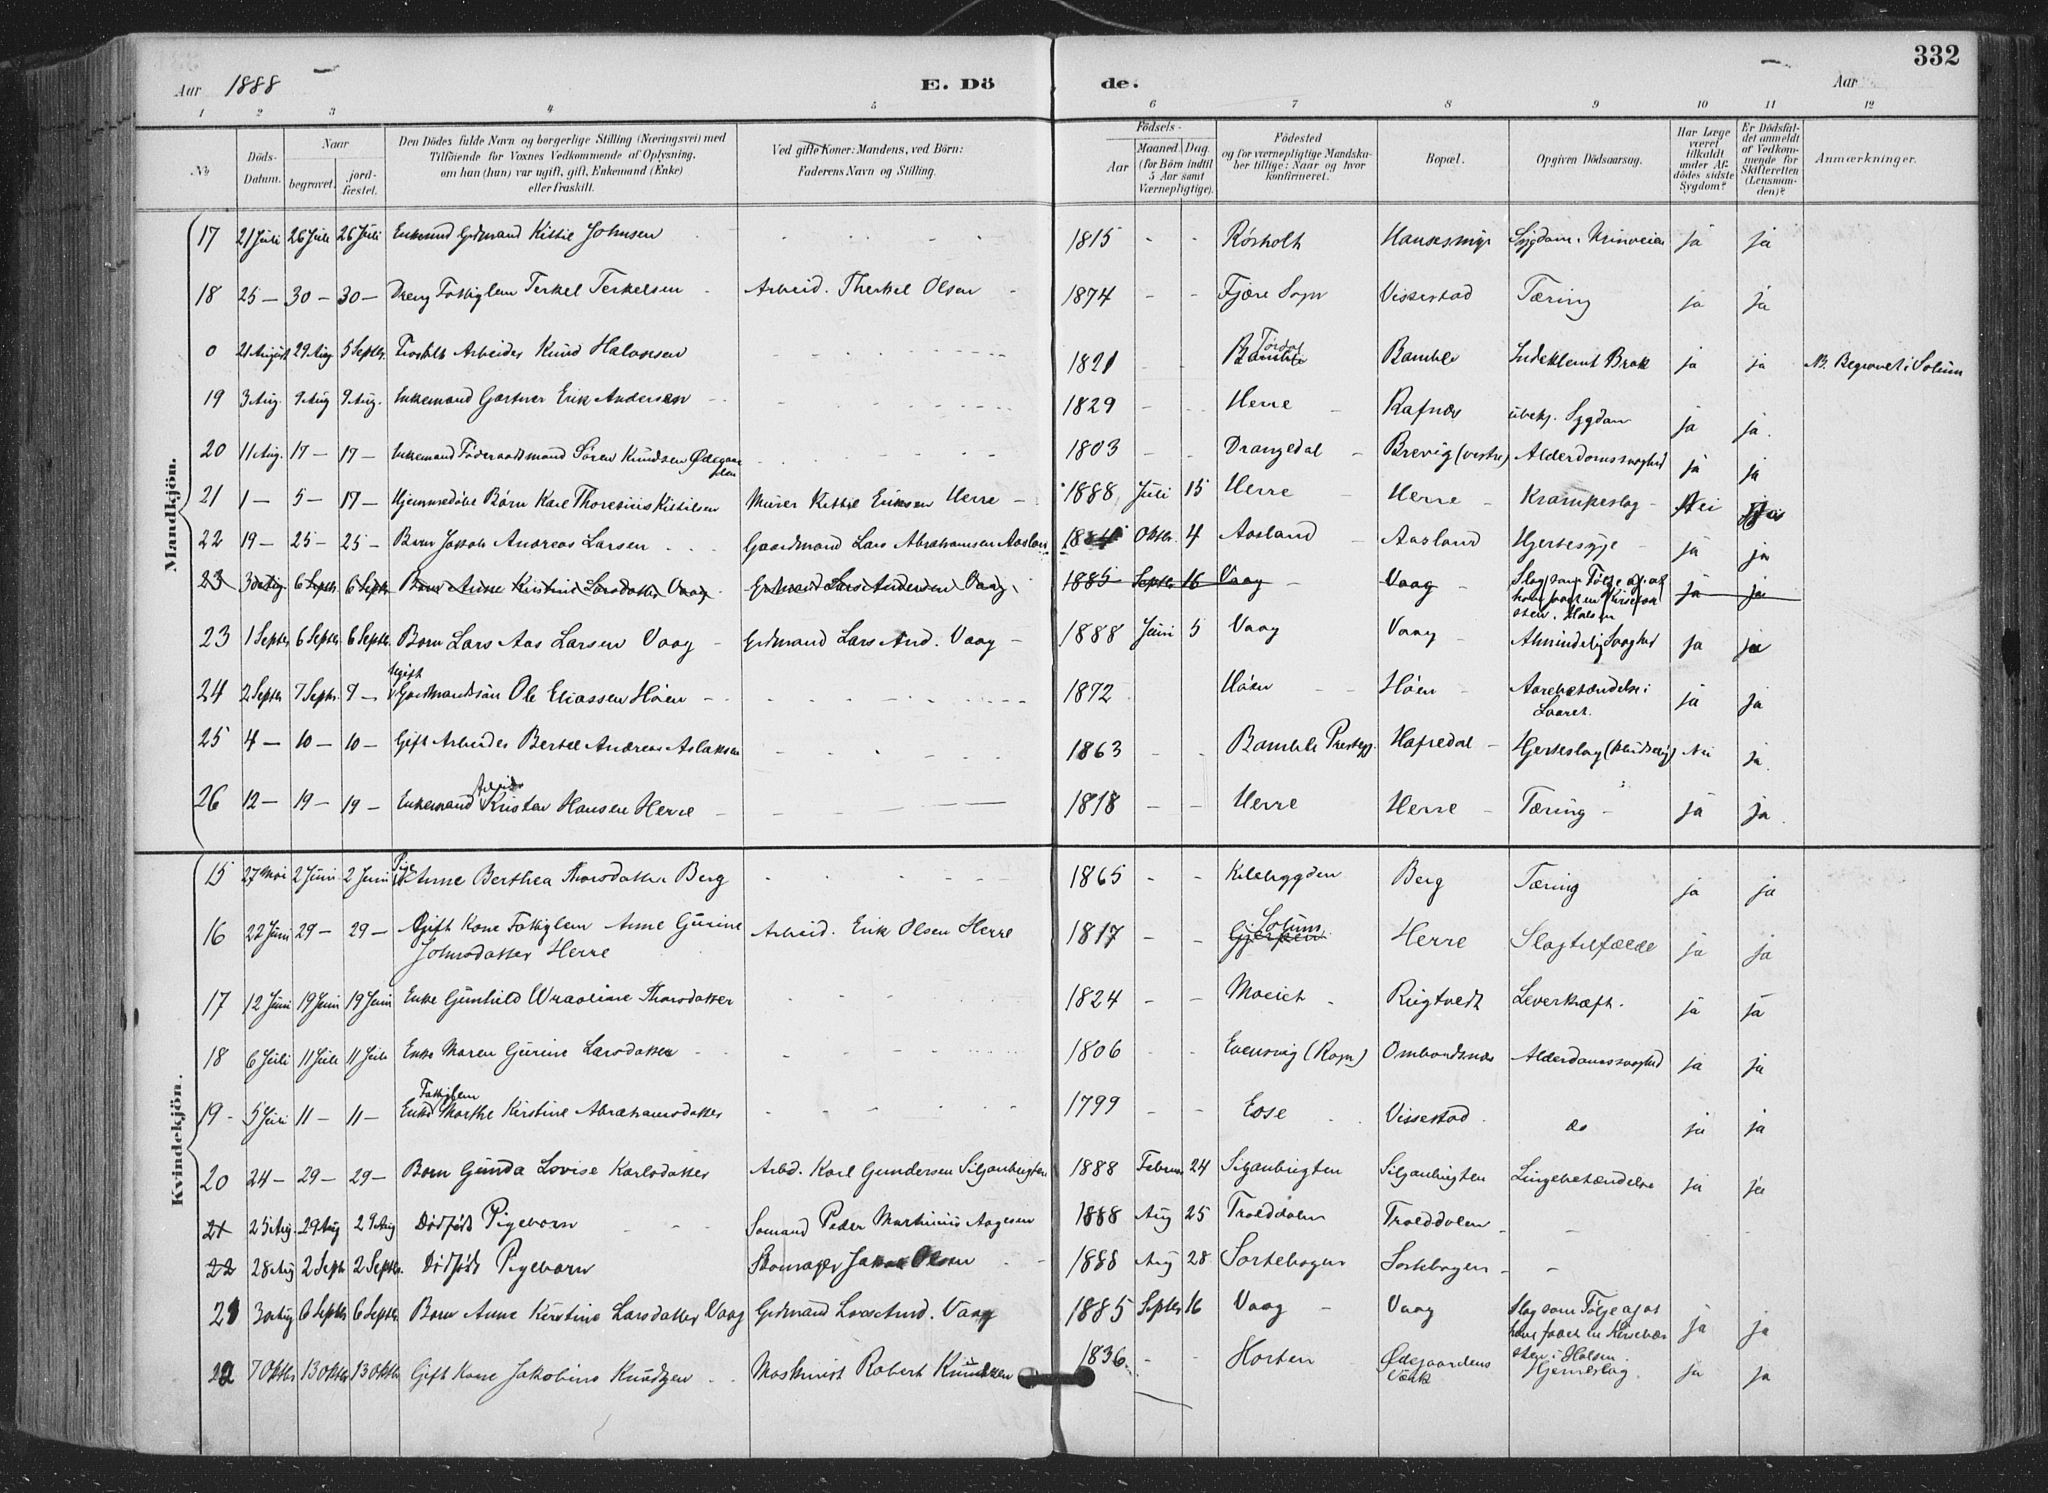 332
Aar 1888
E. Dö de.
Aar
1 2 3 4 5 6 7 8 9 10 11 12
№
Döds-Datum.
Naar
begravet.
jord-fæstet.
Den Dödes fulde Navn og borgerlige Stilling (Næringsvei) med Tilföiende for Voxnes Vedkommende af Oplysning. om han (hun) var ugift, gift, Enkemand (Enke) eller fraskilt.
Ved gifte Koner: Mandens, ved Börn: Faderens Navn og Stilling.
Födsels-
Aar
Maaned. Dag. (for Börn indtil 5 Aar samt Værnepligtige).
Födested og for værnepligtige Mandskaber tillige: Naar og hvor konfirmeret.
Bopæl.
Opgiven Dödsaarsag.
Har Læge været tilkaldt under Afdödes sidste Sygdom?
Er Dödsfaldet anmeldt af Vedkommende for Skifteretten (Lensmanden)?
Anmærkninger.
Mandkjön.
17 21 Juli 26 Juli 26 Juli Enkemd Grdmand Kittil Johnsen 1815 - - Rörholt Hansesmyr Sygdom i Urinveie ja ja
18 25 — 30 — 30 — Dreng Fattiglem Terkel Terkelsen Arbeid. Therkel Olsen 1874 - - Fjære Sogn Vissestad Tæring ja ja
0 21 August 29 Aug 5 Septbr. Fraskilt Arbeider Knud Halvorsen 1821 Bamble Tördal Bamble Indeklemt Brok ja ja NB. Begravet i Solum
19 3 Aug. 9 Aug 9 Aug. Enkemand Gartner Erik Andersen 1829 - - Herre Rafnæs ubek. Sygdom ja ja.
20 11 Aug. 17 — 17 — Enkemand Föderaadsmand Sören Knudsen Ødegaarden 1803 Drangedal Brevig (vestre) Alderdomssvaghed ja ja
21 1 — 5 — 17 — Hjemmedöbt Barn Karl Thoresius Kittilsen Murer Kittil Eriksen Herre 1888 Juli 15 Herre Herre Krampeslag Nei
22 19 — 25 — 25 — Barn Jakob Andreas Larsen Gaardmand Lars Abrahamsen Aasland Oktbr. 4 Aasland Aasland Hjertesyge ja ja
23 30 Aug. 6 Septbr 6 Septbr Barn Anne Kirstine Larsdatter Vaag Grdmand Lars Andersen Vaag 1885 Septbr 16 Vaag Vaag Slag som Fölge af at have faaet en Kirsebærsten i Halsen ja ja
23 1 Septbr 6 Septbr 6 Septbr. Barn Lars Aas Larsen Vaag Grdmand Lars And. Vaag 1888 Juni 5 Vaag Vaag Almindelig Svaghed ja ja
24 2 Septbr 7 Septbr. 7 — Ugift Gaardmandssön Ole Eliassen Höen 1872 Höen Höen Aarebetændelse i Laaret. ja ja
25 4 — 10 — 10 — Gift Arbeider Bertel Andreas Aslaksen 1863 - - Bamble Prestegj. Hafredal Hjerteslag nei ja.
26 12 — 19 — 19 — Enkemand Arbeider Kristen Hansen Herre 1818 - - Herre Herre Tæring ja ja.
Kvindekjön.
15 27 Mai 2 Juni 2 Juni Pige Anne Berthea Thorsdatter Berg 1865 - - Kilebygden Berg Tæring ja ja
16 22 Juni 29 — 29 — Gift Kone Fattiglem Anne Gurine Johnsdatter Herre Arbeid. Erik Olsen Herre 1817 - - Gjerpen Solum Herre Slagtilfælde ja ja
17 12 Juni 19 Juni 19 Juni Enke Gunhild Thorsdatter 1824 - - Rugtvedt Leverkræft. ja ja
18 6 Juli 11 Juli 11 Juli Enke Maren Gurine Larsdatter 1806 - - Evensvig Ombordsnæs Alderdomssvaghed ja ja
19 - 5 Juli 11 — 11 — Fattiglem Enke Marthe Kirstine Abrahamsdatter 1799 - - Vissestad do ja ja
20 24 — 29 — 29 — Barn Gunda Lovise Karlsdatter Arbd. Karl Gundersen Siljanbugten 1888 Februar 24 Siljanbugten Siljanbugten Lungebetændelse ja ja
21 25 Aug. 29 Aug 29 Aug Dödfödt Pigebarn Sömand Peder Martinius Aagesen 1888 Aug 25 Trolddalen Trolddalen
22 28 Aug 2 Septb 2 Septbr. Dödfödt Pigebarn Skomager Jakob Olsen 1888 Aug 28 Sortebogen Sortebogen
21 30 Aug 6 Septbr 6 Septbr. Barn Anne Kirstine Larsdatter Vaag Grdmand Lars And. Vaag 1885 Septbr 16 Vaag Vaag Slag som Fölge af at have faaet en Kirsebærsten i Halsen ja ja
22 7 Oktbr 13 Oktbr 13 Oktbr. Gift Kone Jakobine Knudsen Maskinist Robert Knudsen 1836. - - Horten Ødegaardens Værk Hjerneslag. ja ja